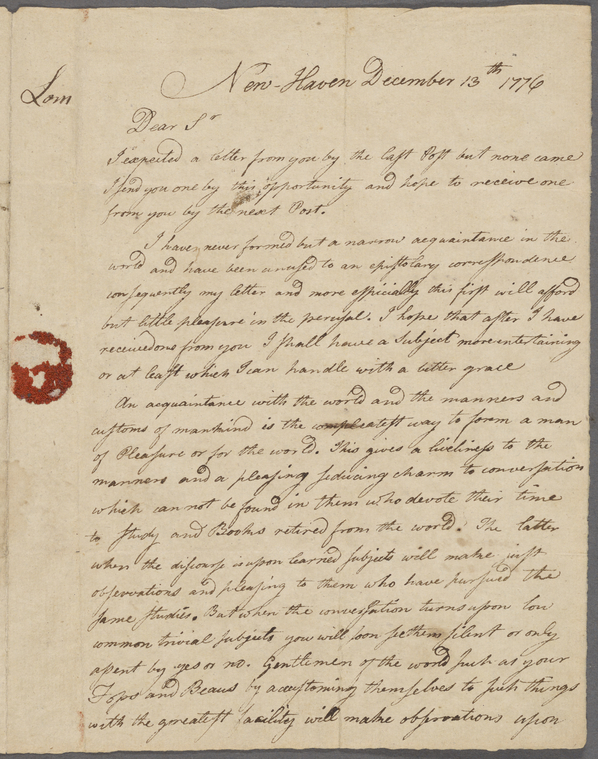 Lom
New-Haven December 13th 1776
Dear Sr
I expected a letter from you by the last Post but none came
I send you one by this opportunity and hope to receive one
from you by the next Post.
I have never formed but a narrow acquaintance in the
world and have been unused to an epistolary correspondence
consequently my letter and more especially this first will afford
but little pleasure in the perusal. I hope that after I have
received one from you I shall have a Subject more entertaining
or at least which I can handle with a better grace
An acquaintance with the world and the manners and
customs of mankind is the compleatest way to form a man
of Pleasure or for the world. This gives a liveliness to the
manners and a pleasing seducing charm to conversation
which can not be found in them who devote their time
to Study and Books retired from the world. The latter
when the discourse is upon learned subjects will make just
observations and pleasing to them who have pursued the
same studies. But when the conversation turns upon low
common trivial subjects you will soon se them silent or only
assent by yes or no. Gentlemen of the world such as your
Fops and Beaus by accustoming themselves to such things
with the greatest facility will make observations upon